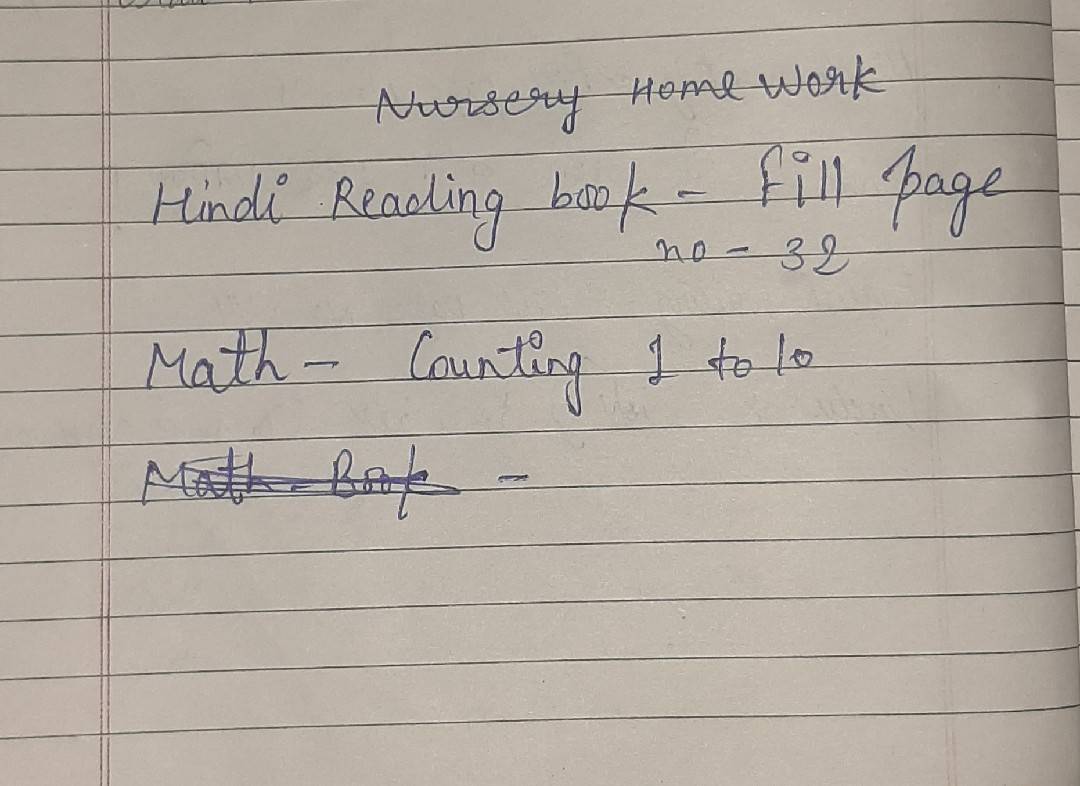 Nursery Home Work
Hindi Reading book - fill page
no - 32
Math - Counting 1 to 10
Math Book -